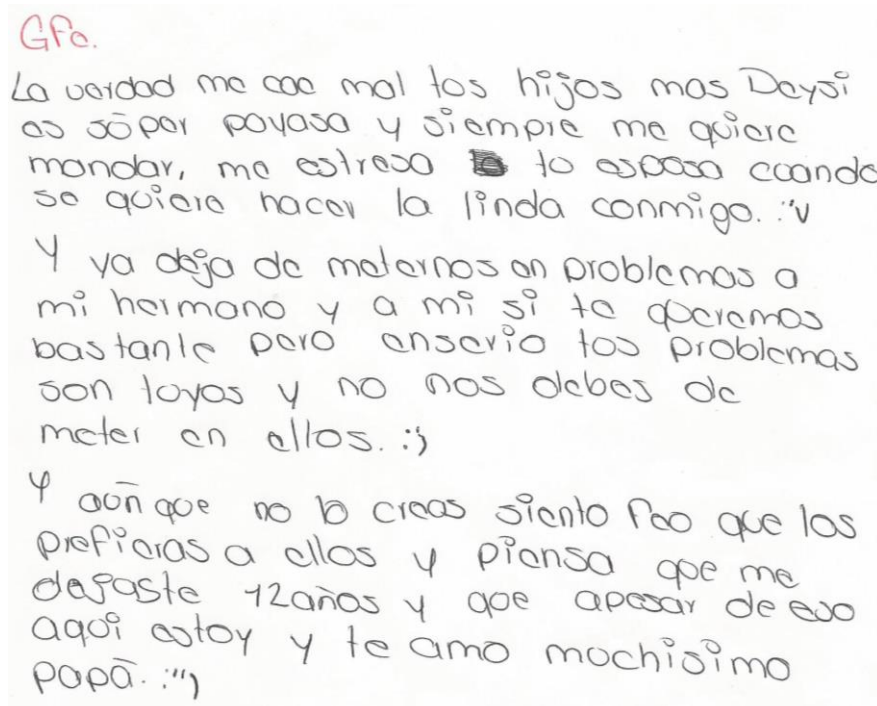 Gfe.
La verdad me cae mal tus hijos mas Deysi
es súper payasa y siempre me quiere
mandar, me estresa tu esposa cuando
se quiere hacer la linda conmigo. :'v
Y ya deja de meternos en problemas a
mi hermano y a mi si te queremos
bastante pero enserio tus problemas
son tuyos y no nos debes de
meter en ellos. :;
Y aún que no lo creas siento feo que los
prefieras a ellos y piensa que me
dejaste 12 años y que apesar de eso
aqui estoy y te amo muchisimo
papá. :'')